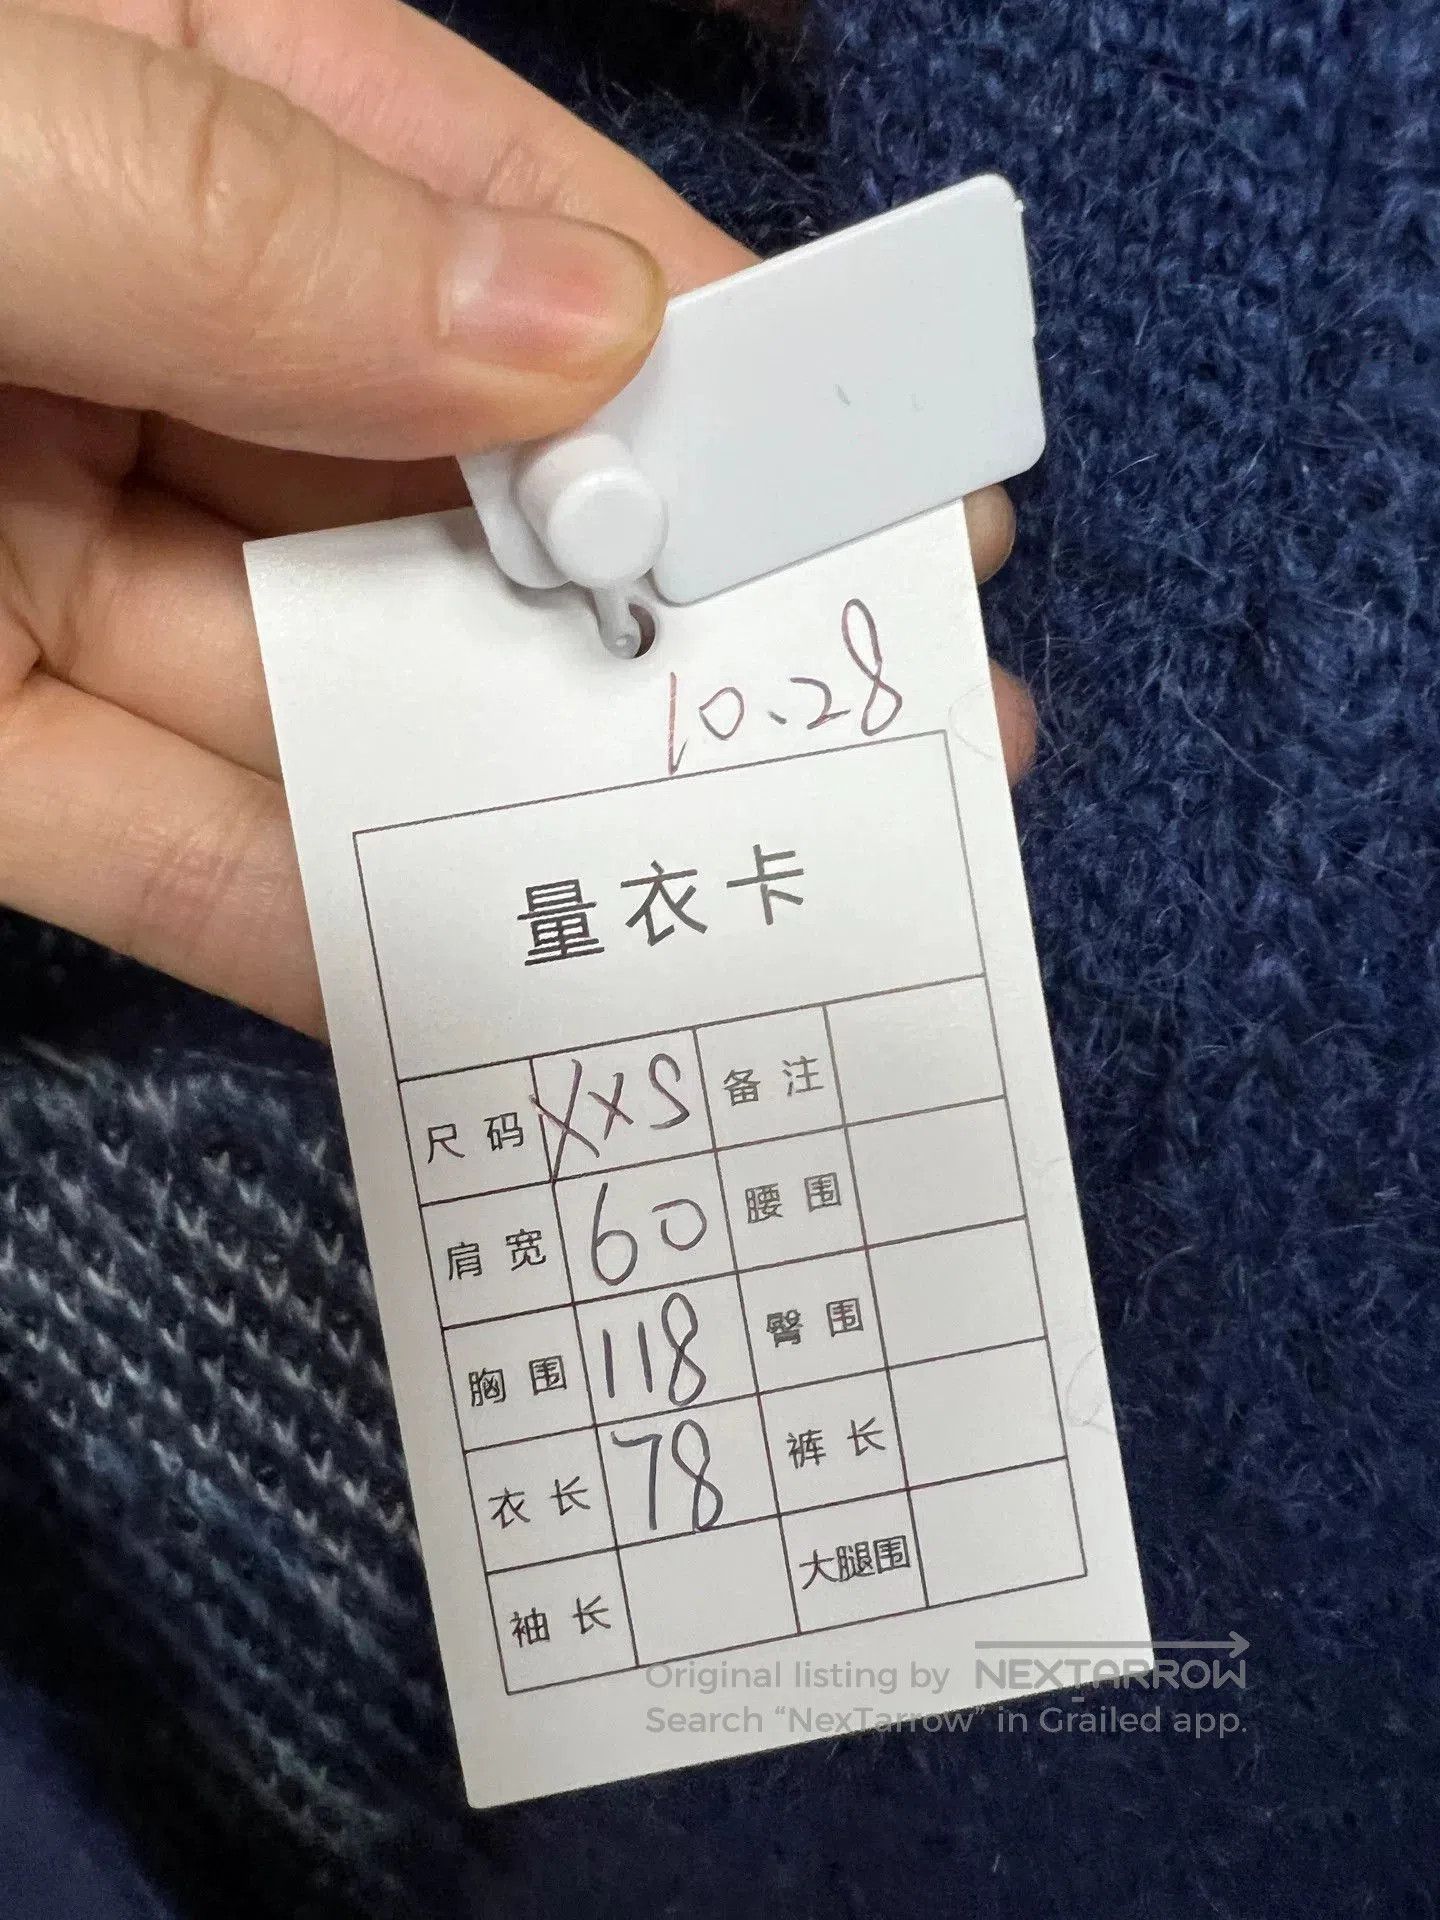 10.28
量衣卡
尺码 XXS 备注
肩宽 60 腰围
胸围 118 臀围
衣长 78 裤长
袖长 大腿围
Original listing by NEXTARROW
Search “NexTarrow” in Grailed app.